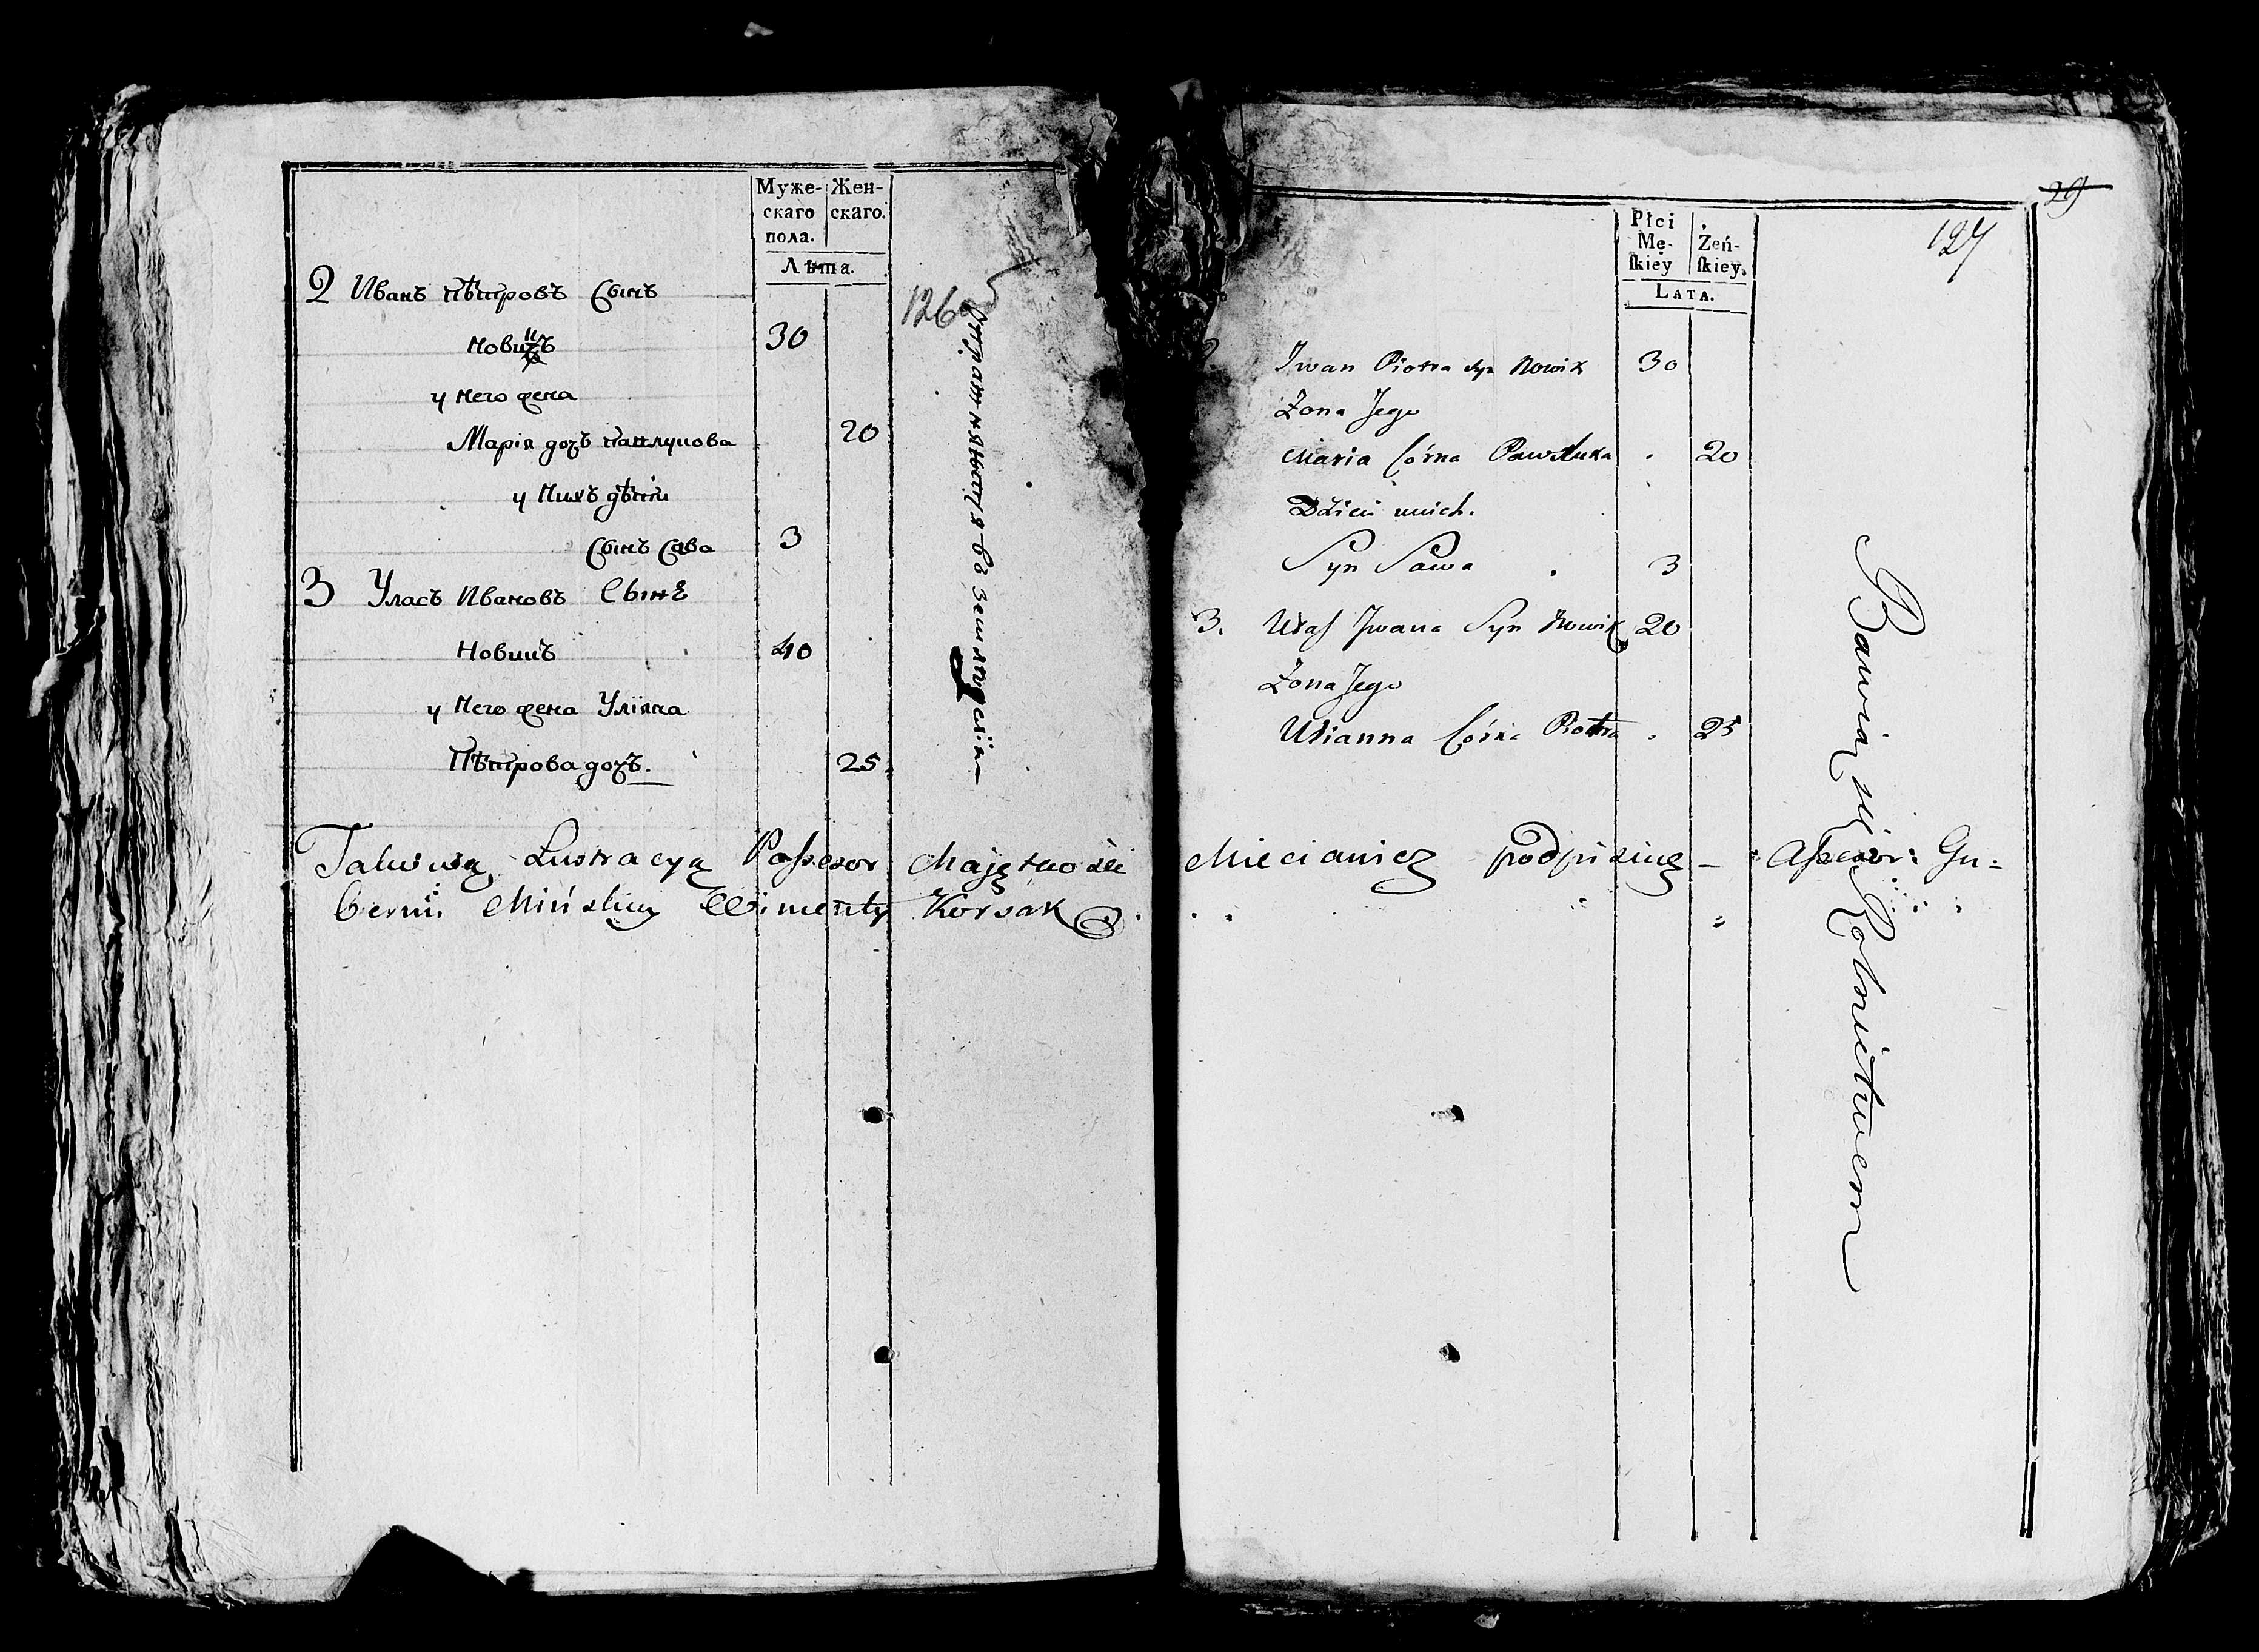 Муже- Жен-
скаго скаго.
пола.
Лѣта.
2 Иванъ Пѣтровъ Сынъ
Новикъ 30
у Него жена
Марія дочь Павлукова 20
у Нихъ дѣти
Сынъ Сава 3
3 Уласъ Ивановъ Сынъ
Новикъ 40
у Него жена Уліяна
Пѣтрова дочь. 25
126
Płci Żeń-
Mę- skiey.
skiey
LATA.
29
127
Iwan Piotra syn Nowik 30
Żona Jego
Maria Córka Pawluka 20
Dzieci unich.
Syn Sawa 3
3. Ułas Iwana Syn Nowik 20
Żona Jego
Ulianna Córka Piotra 25
Bawią się Rolnictwem
Takową Lustracyą Possesor Maiętności Miecianicz podpisuię – Assesor: Gu=
berni: Mińskiey Klimenty Korsak